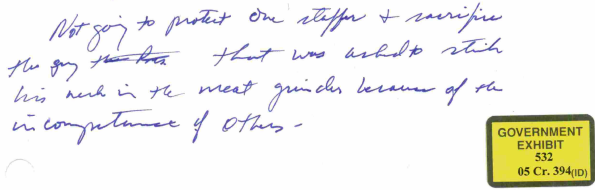 Not going to protect one staffer + sacrifice
the guy that was asked to stick
his neck in the meat grinder because of the
incompetence of others –
GOVERNMENT
EXHIBIT
532
05 Cr. 394(ID)